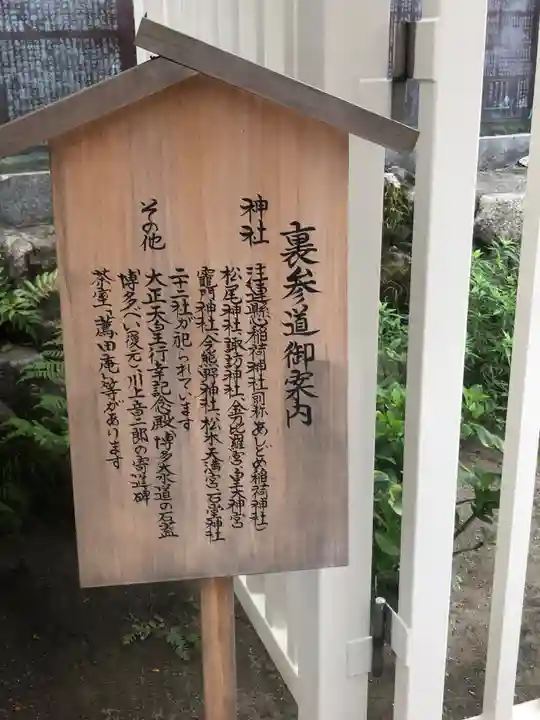 裏参道御案内
神社
注連懸稲荷神社(別称 あじどめ稲荷神社)
松尾神社、諏訪神社、金刀比羅宮、皇大神宮
竈門神社、今熊野神社、松氷天満宮、石堂神社
二十二社が祀られています
その他
大正天皇行幸記念殿 博多大水道の石蓋
博多べい(復元)、川上音二郎の寄進碑
茶室「萬田庵」等があります